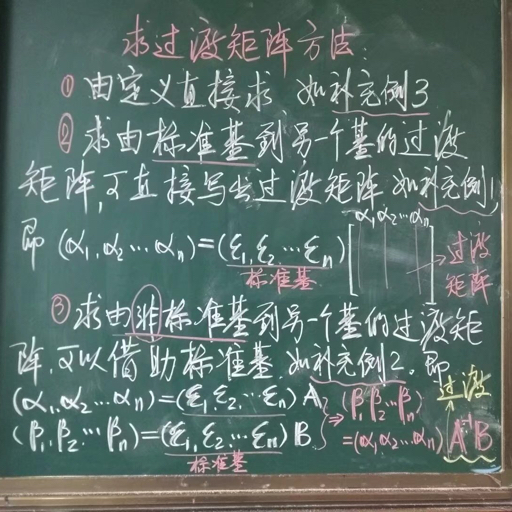 求过渡矩阵方法:
① 由定义直接求 如补充例3
② 求由标准基到另一个基的过渡
矩阵,可直接写出过渡矩阵 如补充例1,
α₁,α₂…αₙ
即 (α₁,α₂…αₙ)=(ε₁,ε₂…εₙ)[ ] →过渡
标准基 矩阵
③ 求由非标准基到另一个基的过渡矩
阵,可以借助标准基 如补充例2。即
过渡
(α₁,α₂…αₙ)=(ε₁,ε₂…εₙ)A ⇒ (β₁,β₂…βₙ)
(β₁,β₂…βₙ)=(ε₁,ε₂…εₙ)B =(α₁,α₂…αₙ)A⁻¹B
标准基